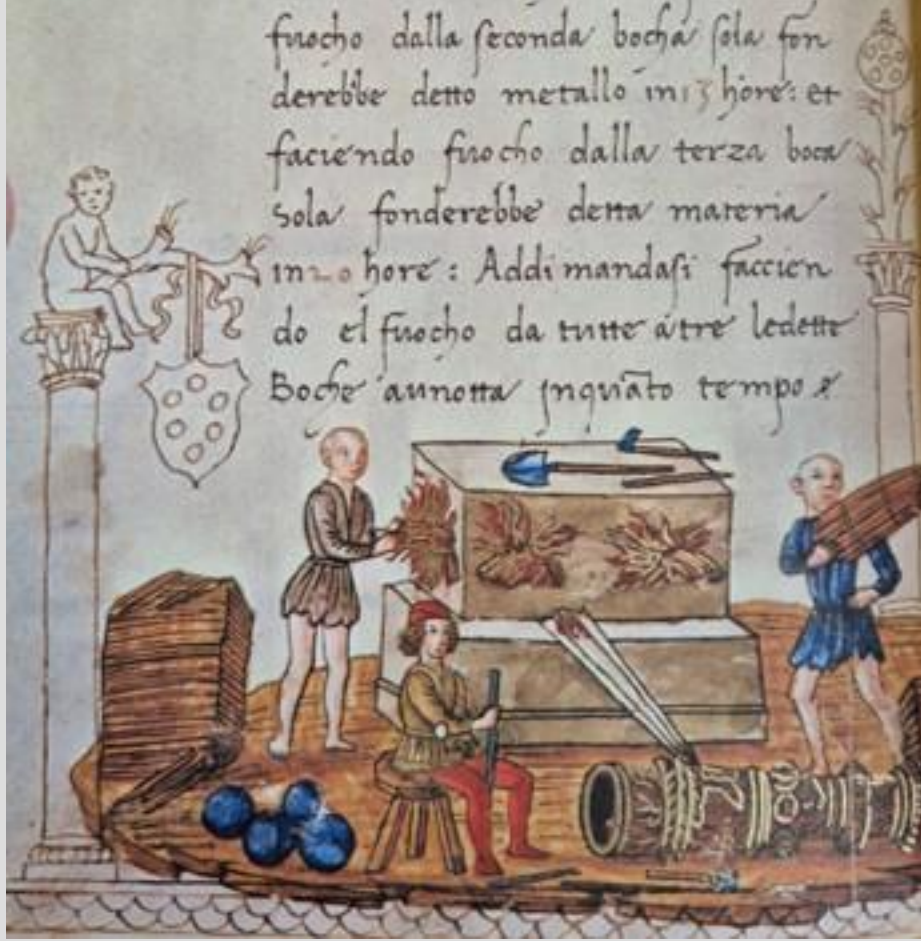 fuocho dalla seconda bocha sola fon
derebbe detto metallo in 13 hore: et
faciendo fuocho dalla terza boca
sola fonderebbe detta materia
in 20 hore: Addimandasi faccien
do el fuocho da tutte a tre ledette
Boche aunotta inquāto tempo e